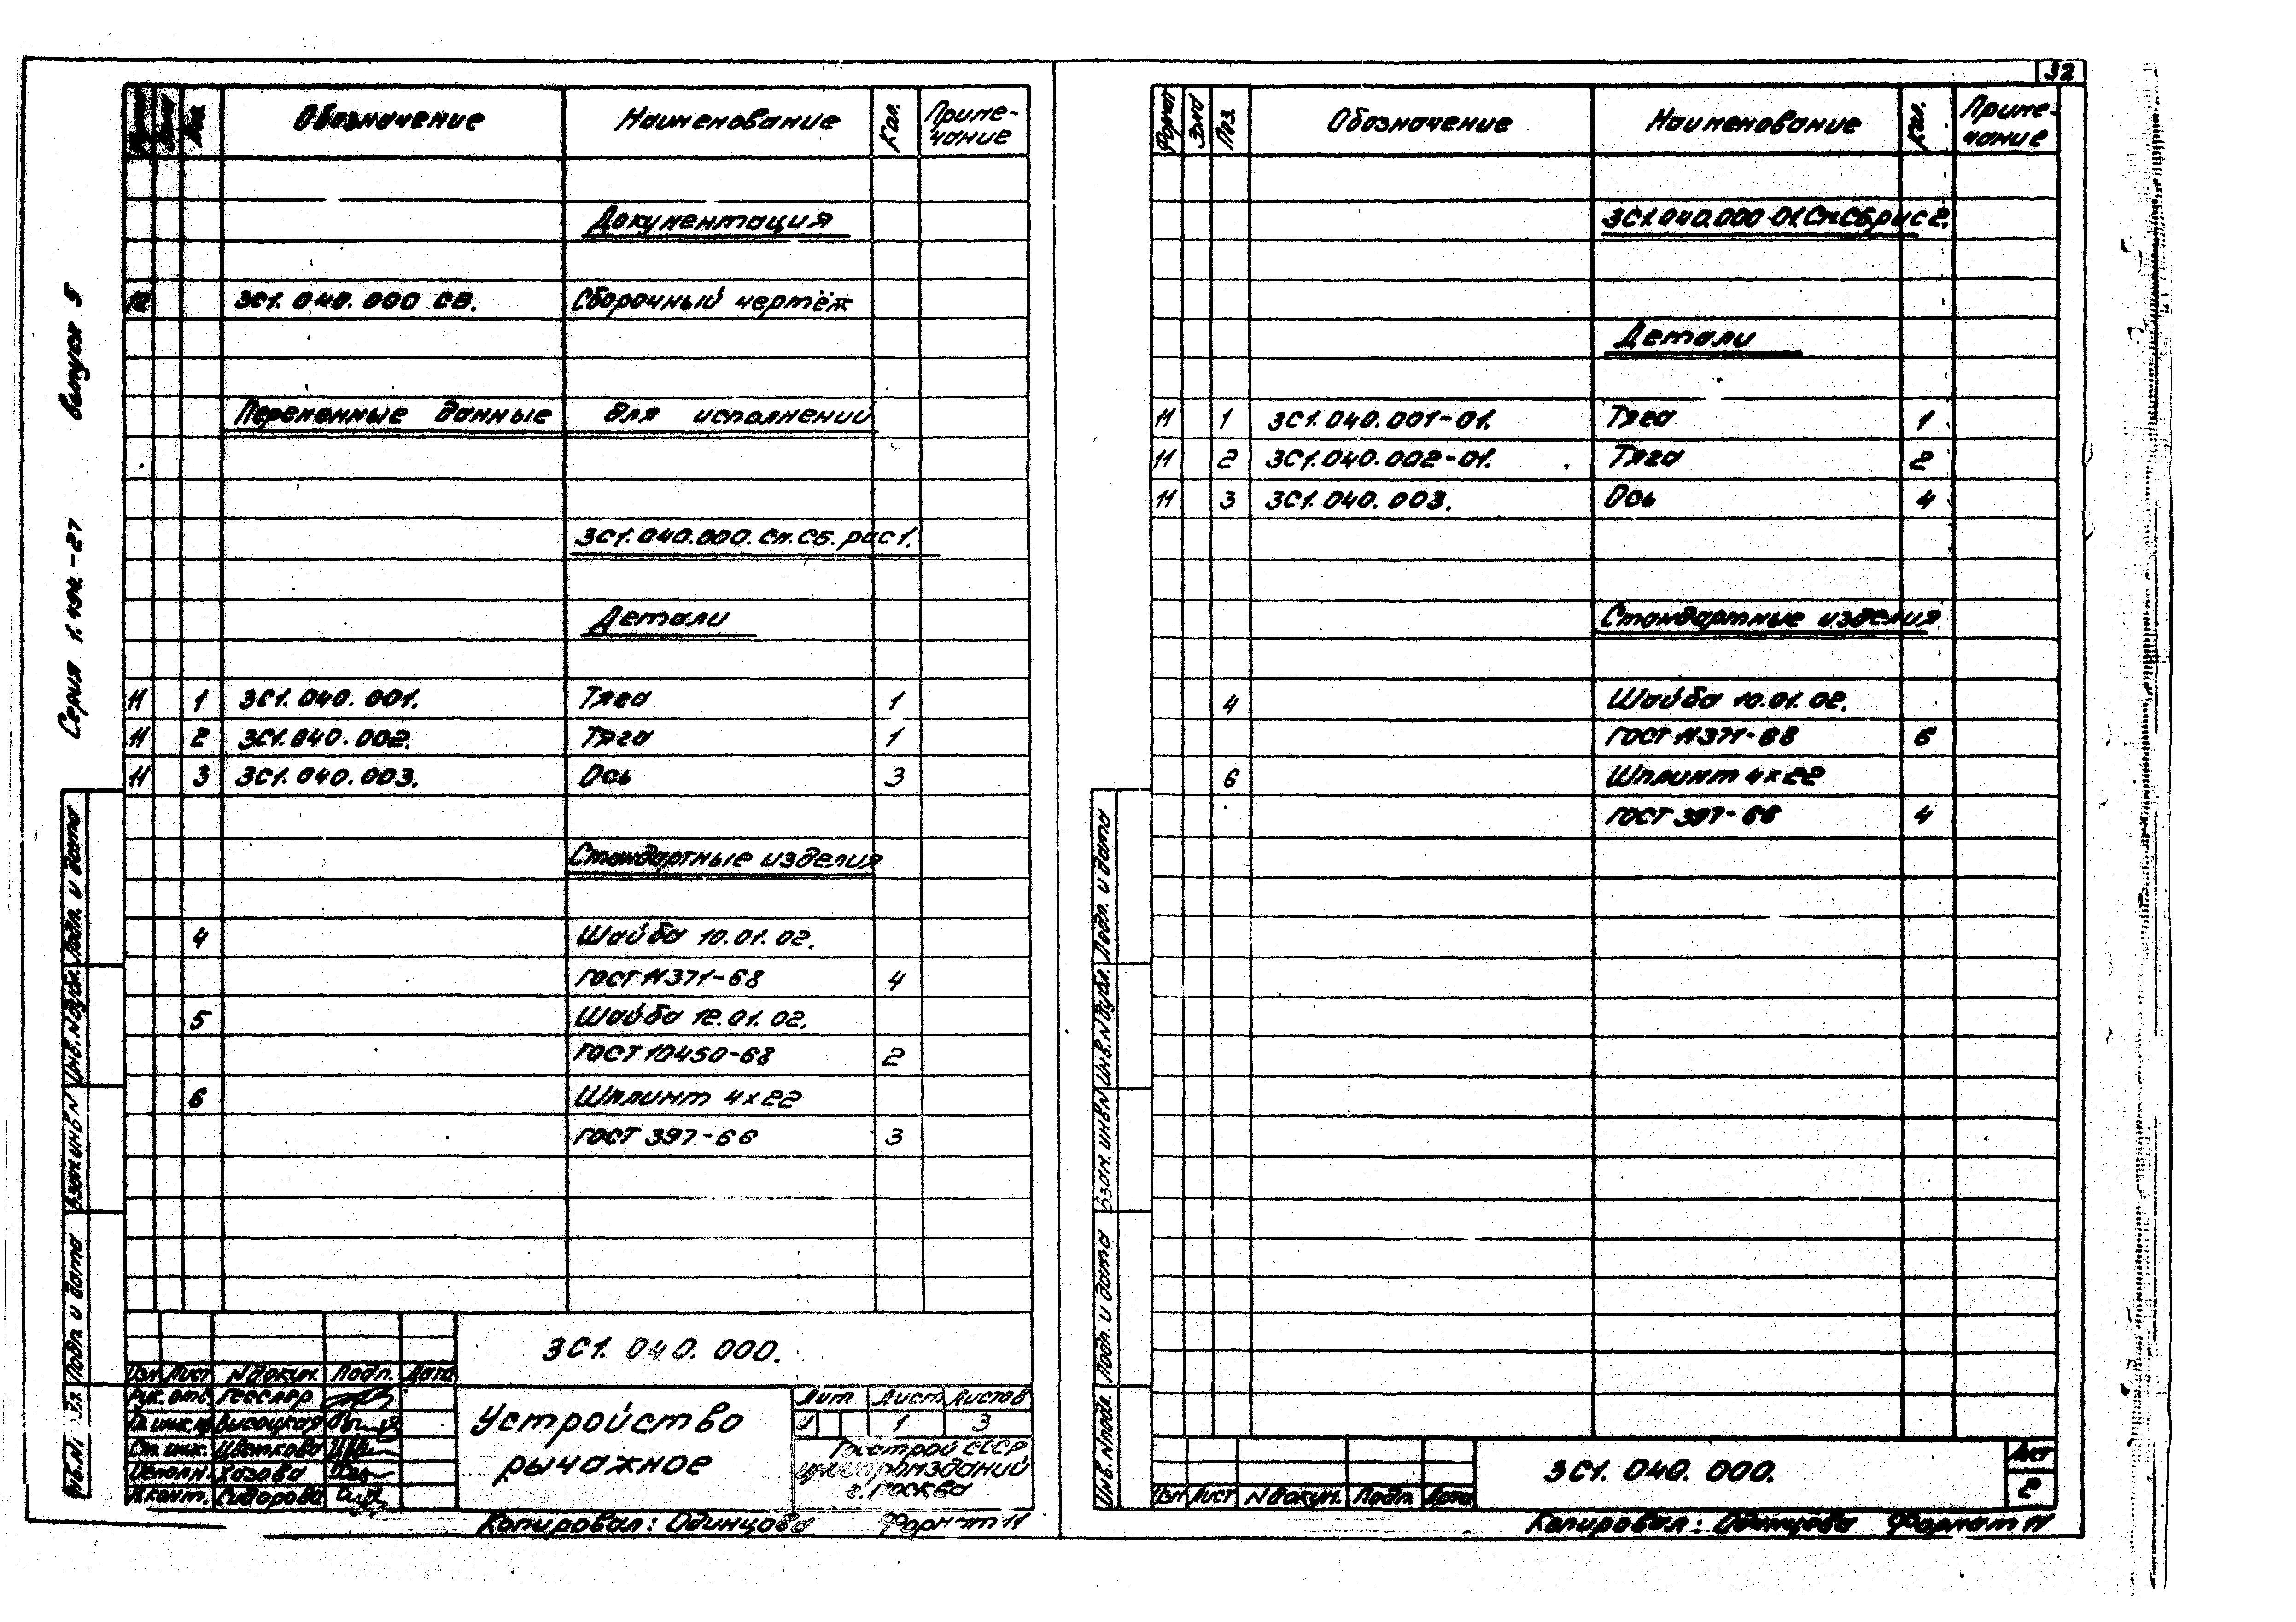 32
Серия 1.494-27 выпуск 5
Формат Зона Поз. Обозначение Наименование Кол. Приме-
чание
Документация
12 3С1.040.000 СБ. Сборочный чертёж
Переменные данные для исполнений
3С1.040.000.См.СБ.рис1.
Детали
11 1 3С1.040.001. Тяга 1
11 2 3С1.040.002. Тяга 1
11 3 3С1.040.003. Ось 3
Стандартные изделия
4 Шайба 10.01.02.
ГОСТ 11371-68 4
5 Шайба 12.01.02.
ГОСТ 10450-68 2
6 Шплинт 4х22
ГОСТ 397-66 3
Подп. и дата
Инв.N дубл.
Взам.инв N
Подп. и дата
3С1.040.000.
Изм Лист N докум. Подп. Дата
Рук. отд. Гесслер
Высоцкая
Ст. инж. Цветкова
Исполн. Хазова
Н.конт. Сидорова
Устройство
рычажное
Лит Лист Листов
И 1 3
Госстрой СССР
ЦНИИпромзданий
г. Москва
Копировал: Одинцова Формат 11
Формат Зона Поз. Обозначение Наименование Кол. Приме-
чание
3С1.040.000-01.См.СБ.рис2.
Детали
11 1 3С1.040.001-01. Тяга 1
11 2 3С1.040.002-01. Тяга 2
11 3 3С1.040.003. Ось 4
Стандартные изделия
4 Шайба 10.01.02.
ГОСТ 11371-68 6
6 Шплинт 4х22
ГОСТ 397-66 4
Подп. и дата
Инв.N дубл.
Взам. инв N
Подп. и дата
Инв. N подл.
Изм Лист N докум. Подп. Дата
3С1.040.000.
Лист
2
Копировал: Одинцова Формат 11